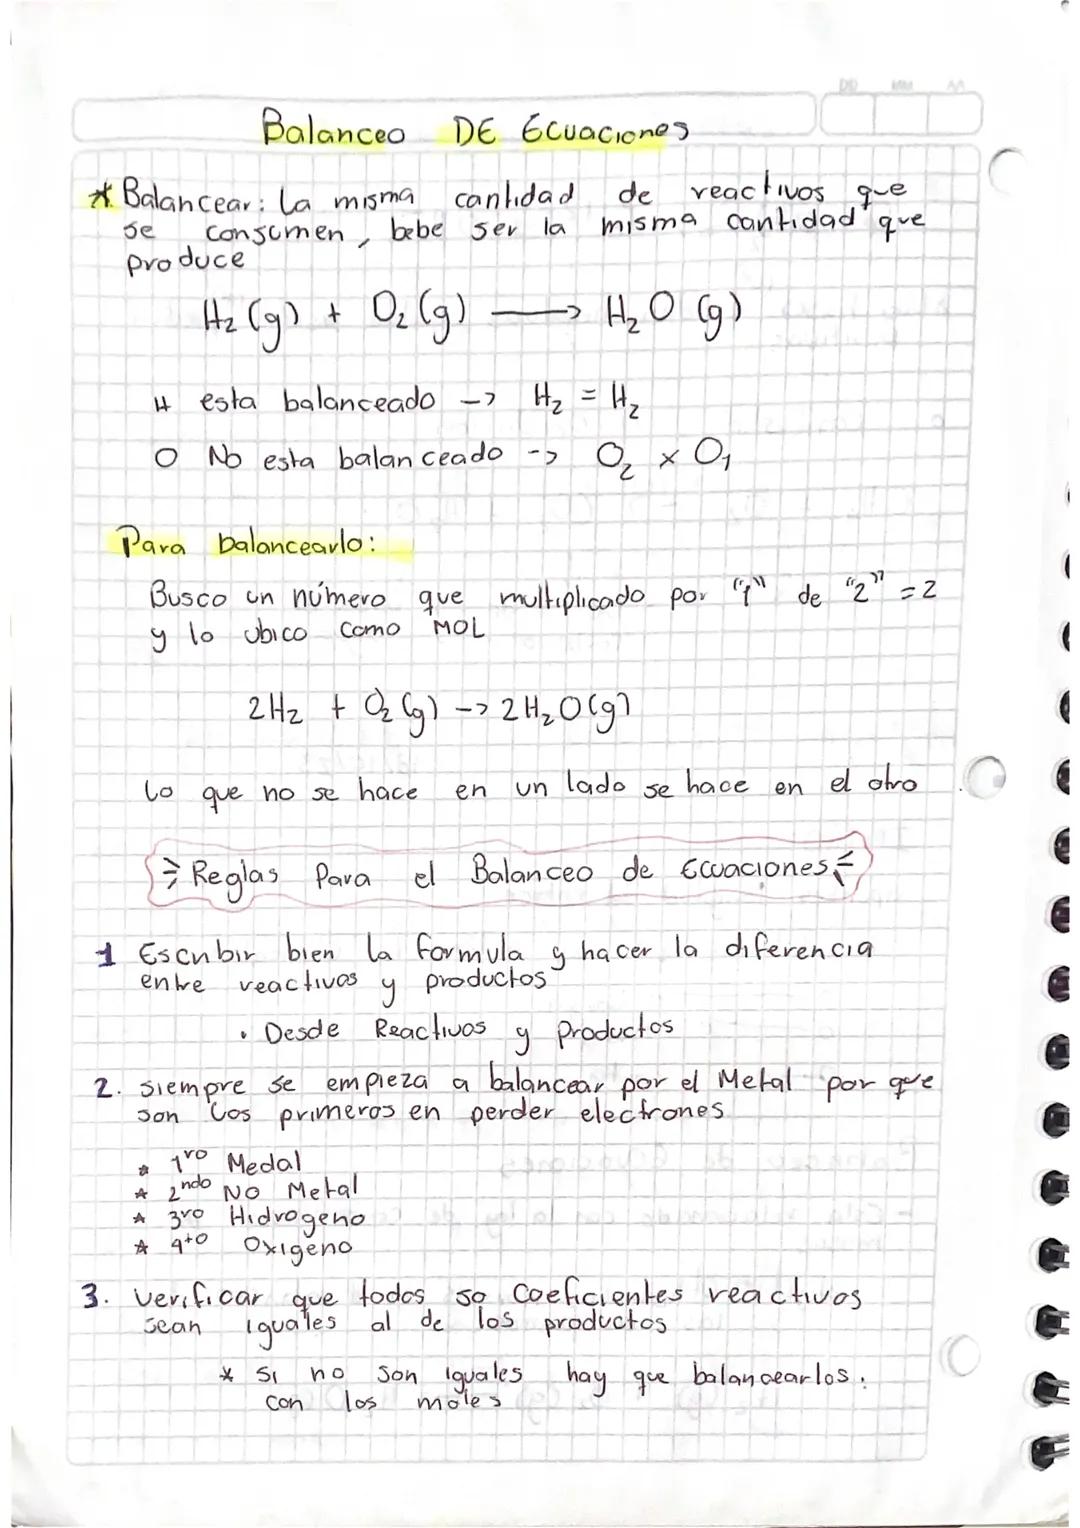 DD MM AA
Balanceo DE Ecuaciones
* Balancear: La misma cantidad de reactivos que
se consumen, bebe ser la misma cantidad que
produce
H₂ (g) + O₂ (g) ⟶ H₂O (g)
H esta balanceado -> H₂ = H₂
O No esta balanceado -> O₂ × O₁
Para balancearlo:
Busco un número que multiplicado por "1" de "2" = 2
y lo ubico como MOL
2H₂ + O₂ (g) -> 2H₂O (g)
Lo que no se hace en un lado se hace en el otro
Reglas Para el Balanceo de Ecuaciones
1 Escribir bien la formula y hacer la diferencia
entre reactivos y productos
• Desde Reactivos y productos
2. siempre se empieza a balancear por el Metal por que
son los primeros en perder electrones
* 1ro Medal
* 2ndo No Metal
* 3ro Hidrogeno
* 4to Oxigeno
3. verificar que todos so coeficientes reactivos
sean iguales al de los productos
* Si no son iguales hay que balancearlos.
con los moles